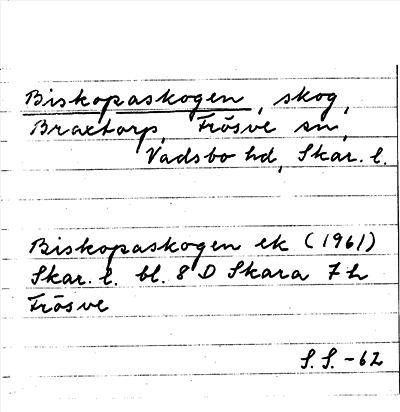 Biskopaskogen, skog,
Braxtorp, Frösve sn,
Vadsbo hd, Skar. l.
Biskopaskogen ek (1961)
Skar. l. bl. 8 D Skara 7 h
Frösve
S. S. -62